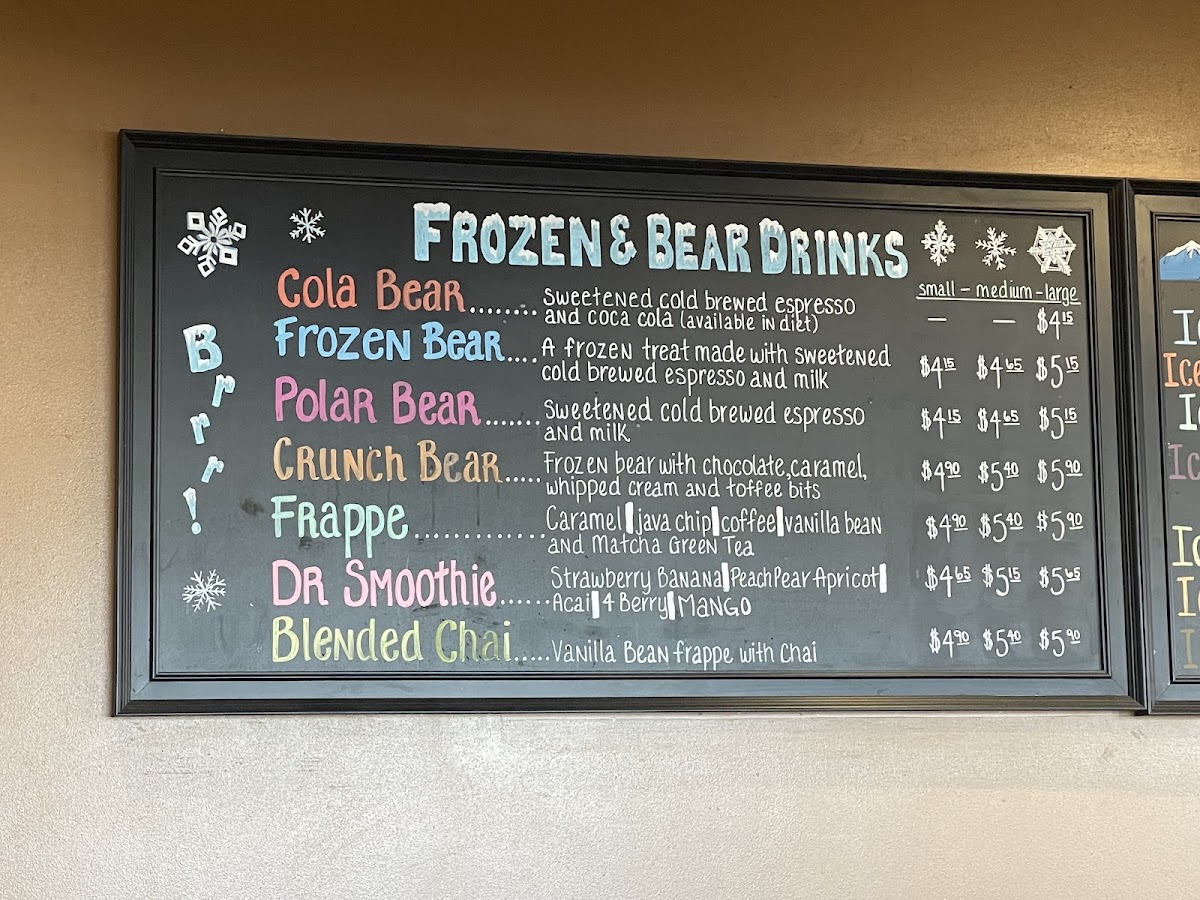 FROZEN & BEAR DRINKS
small - medium - large
Brrr!
Cola Bear........ Sweetened cold brewed espresso
and coca cola (available in diet) — — $4.15
Frozen Bear.... A frozen treat made with sweetened
cold brewed espresso and milk $4.15 $4.65 $5.15
Polar Bear....... Sweetened cold brewed espresso
and milk $4.15 $4.65 $5.15
Crunch Bear..... Frozen bear with chocolate, caramel,
whipped cream and toffee bits $4.90 $5.40 $5.90
Frappe............. Caramel | java chip | coffee | vanilla bean
and Matcha Green Tea $4.90 $5.40 $5.90
Dr Smoothie...... Strawberry Banana | Peach Pear Apricot |
Acai | 4 Berry | Mango $4.65 $5.15 $5.65
Blended Chai..... Vanilla Bean frappe with Chai $4.90 $5.40 $5.90